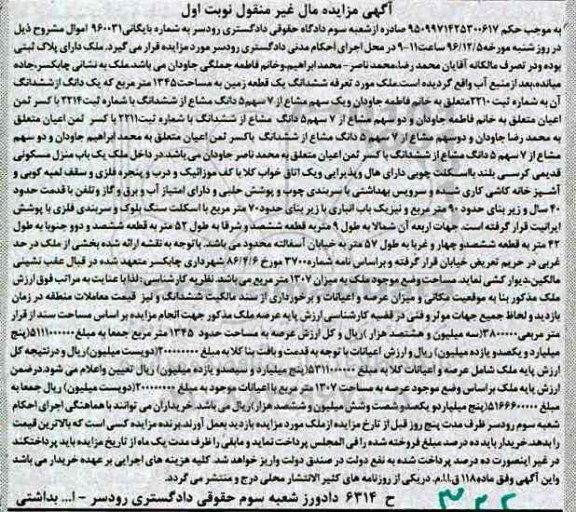 آگهی مزایده مال غیر منقول نوبت اول
به موجب حکم ۹۵۰۹۹۷۱۴۲۵۳۰۰۶۱۷ صادره ازشعبه سوم دادگاه حقوقی دادگستری رودسر به شماره بایگانی۹۶۰۰۳۱ اموال مشروح ذیل
در روز شنبه مورخه۹۶/۱۲/۵ ساعت۱۱-۹ در محل اجرای احکام مدنی دادگستری رودسر مورد مزایده قرار می گیرد. ملک دارای پلاک ثبتی
بوده ودر تصرف مالکانه آقایان محمد رضا،محمد ناصر- محمد ابراهیم،وخانم فاطمه جملگی جاودان می باشد.ملک به نشانی چابکسر،جاده
میانده،بعد ازمنبع آب واقع گردیده است.ملک مورد تعرفه ششدانگ یک قطعه زمین به مساحت۱۳۴۵ متر مربع که یک دانگ ازششدانگ
آن به شماره ثبت ۲۲۱۰متعلق به خانم فاطمه جاودان ویک سهم مشاع از ۷ سهم۵ دانگ مشاع از ششدانگ با شماره ثبت۲۲۱۴ با کسر ثمن
اعیان متعلق به خانم فاطمه جاودان و دو سهم مشاع از ۷ سهم۵ دانگ مشاع از ششدانگ با شماره ثبت۲۲۱۱ با کسر ثمن اعیان متعلق
به محمد رضا جاودان و دوسهم مشاع از ۷ سهم ۵ دانگ مشاع از ششدانگ باکسر ثمن اعیان متعلق به محمد ابراهیم جاودان و دو سهم
مشاع از ۷ سهم ۵ دانگ مشاع از ششدانگ با کسر ثمن اعیان متعلق به محمد ناصر جاودان می باشد.در داخل ملک یک باب منزل مسکونی
قدیمی کرسی بلند بااسکلت چوبی دارای هال وپذیرایی ویک اتاق خواب کلا با کف موزائیک و درب و پنجره فلزی و سقف لمبه کوبی و
آشپز خانه کاشی کاری شده و سرویس بهداشتی با سربندی چوب و پوشش حلبی و دارای امتیاز آب و برق و گاز وتلفن با قدمت حدود
۴۰ سال و زیر بنای حدود ۹۰ متر مربع و نیزیک باب انباری با زیر بنای حدود۷۰ متر مربع با اسکلت سنگ بلوک و سربندی فلزی با پوشش
ایرانیت قرار گرفته است. جهات اربعه آن شمالا به طول ۹ متربه قطعه ششصد و شرقا به طول ۵۲ متر به قطعه ششصد و دوو جنوبا به طول
۴۲ متر به قطعه ششصدو چهار و غربا به طول ۵۷ متر به خیابان آسفالته محدود می باشد. با توجه به نقشه ارائه شده بخشی از ملک در حد
غربی در حریم تعریض خیابان قرار گرفته و براساس نامه شماره۳۷۰۰ مورخ ۸۶/۴/۶ شهرداری چابکسر متعهد شده در قبال عقب نشینی
مالکین،دیوار کشی نماید. مساحت وضع موجود ملک به میزان ۱۳۰۷ متر مربع می باشد. نظریه کارشناسی :لذا با عنایت به مراتب فوق ارزش
ملک مذکور بنا به موقعیت مکانی و میزان عرصه و اعیانات و برخورداری از سند مالکیت ششدانگ و نیز قیمت معاملات منطقه در زمان
بازدید و لحاظ جمیع جهات موثر و فنی در قضیه کارشناسی ارزش پایه عرصه ملک مذکور جهت انجام مزایده بر اساس مساحت سند از قرار
متر مربعی ۳۸۰۰۰۰۰(سه میلیون و هشتصد هزار )ریال و کل ارزش عرصه به مساحت حدود ۱۳۴۵ متر مربع جمعا به مبلغ ۵۱۱۱۰۰۰۰۰۰(پنج
میلیارد و یکصدو یازده میلیون) ریال و ارزش اعیانات با توجه به قدمت وبافت بنا کلا به مبلغ ۲۰۰۰۰۰۰۰۰(دویست میلیون)ریال و درنتیجه کل
ارزش پایه ملک شامل عرصه و اعیانات کلا به مبلغ ۵۳۱۱۰۰۰۰۰۰(پنج میلیارد و سیصدو یازده میلیون) ریال تعیین واعلام می شود.درضمن
ارزش پایه ملک براساس وضع موجود عرصه به مساحت ۱۳۰۷ متر مربع با اعیانات موجود به مبلغ ۲۰۰۰۰۰۰۰۰(دویست میلیون) ریال جمعا به
مبلغ ۵۱۶۶۶۰۰۰۰۰(پنج میلیارد و یکصدو شصت وشش میلیون و ششصد هزار)ریال می باشد.خریداران می توانند با هماهنگی اجرای احکام
شعبه سوم رودسر ظرف مدت پنج روز قبل از تاریخ مزایده ازملک مورد مزایده بازدید بعمل آورند.برنده مزایده کسی است که بالاترین قیمت
را بدهد.خریدار باید ده درصد مبلغ فروخته شده را فی المجلس پرداخت نماید و مابقی را ظرف مدت یک ماه از تاریخ مزایده باید پرداختکند
در غیر اینصورت ده درصد پرداخت شده به نفع دولت در صندق دولت واریز خواهد شد. کلیه هزینه های اجرایی بر عهده خریدار می باشد
واین آگهی وفق ماده۱۱۸ ق.ا.ا.م. دریکی از روزنامه های کثیر الانتشار محلی درج و منتشر می گردد.
ح ۶۳۱۴ دادورز شعبه سوم حقوقی دادگستری رودسر - ا... بداشتی
۳۲۲